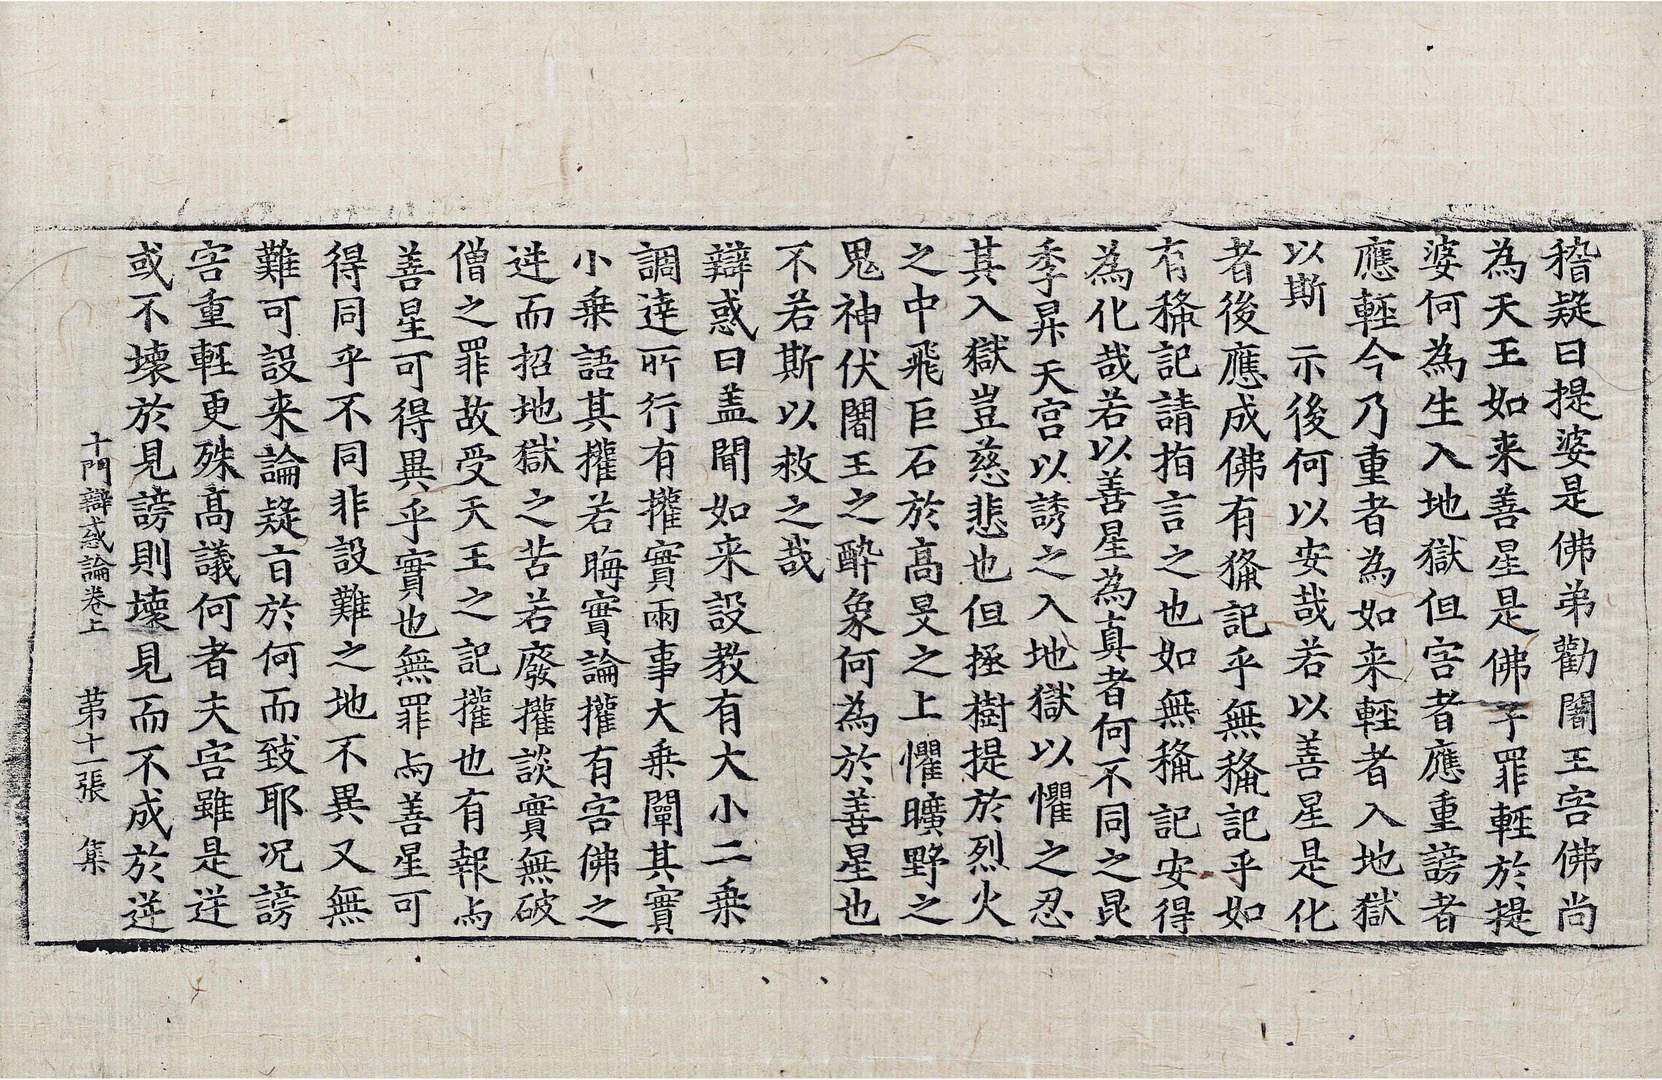 稽疑曰提婆是佛弟勸闍王害佛尚
為天王如来善星是佛子罪輕於提
婆何為生入地獄但害者應重謗者
應輕今乃重者為如来輕者入地獄
以斯示後何以安哉若以善星是化
者後應成佛有𥠖記乎無𥠖記乎如
有𥠖記請指言之也如無𥠖記安得
為化哉若以善星為真者何不同之昆
季昇天宫以誘之入地獄以懼之忍
其入獄豈慈悲也但拯樹提於烈火
之中飛巨石於髙旻之上懼曠野之
鬼神伏闍王之醉象何為於善星也
不若斯以救之哉
辯惑曰盖聞如来設教有大小二乗
調達所行有權實兩事大乗闡其實
小乗語其權若晦實論權有害佛之
逆而招地獄之苦若廢權談實無破
僧之罪故受天王之記權也有報与
善星可得異乎實也無罪与善星可
得同乎不同非設難之地不異又無
難可設来論疑盲於何而致耶况謗
害重輕更殊髙議何者夫害雖是逆
或不壞於見謗則壞見而不成於逆
十門辯惑論卷上　第十一張　集